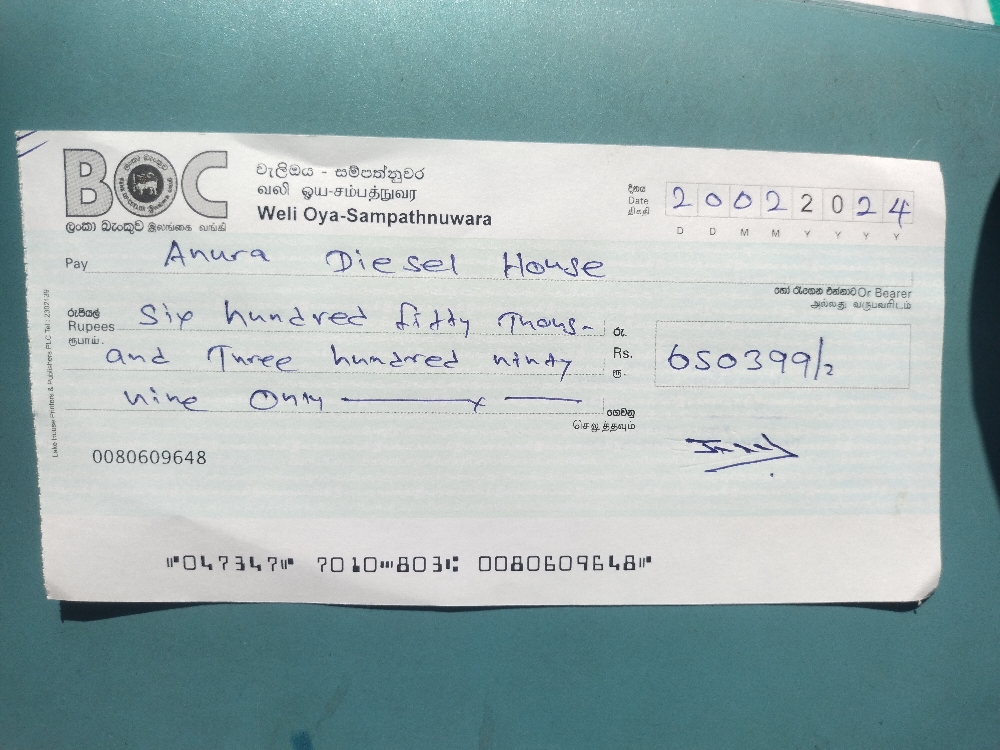 BOC
ලංකා බැංකුව இலங்கை வங்கி
වැලිඔය - සම්පත්නුවර
வலி ஒயா-சம்பத்நுவர
Weli Oya-Sampathnuwara
දිනය
Date
திகதி
2 0 0 2 2 0 2 4
D D M M Y Y Y Y
Pay Anura Diesel House
හෝ රැගෙන එන්නාට Or Bearer
அல்லது வருபவரிடம்
රුපියල්
Rupees
ரூபாய்
Six hundred fifty Thous-
and Three hundred nindy
nine Only
රු.
Rs.
ரூ.
650399/2
ගෙවනු
செலுத்தவும்
0080609648
Lake House Printers & Publishers PLC Tel : 2302129
⑈047347⑈ 7010⑉803⑆ 0080609648⑈